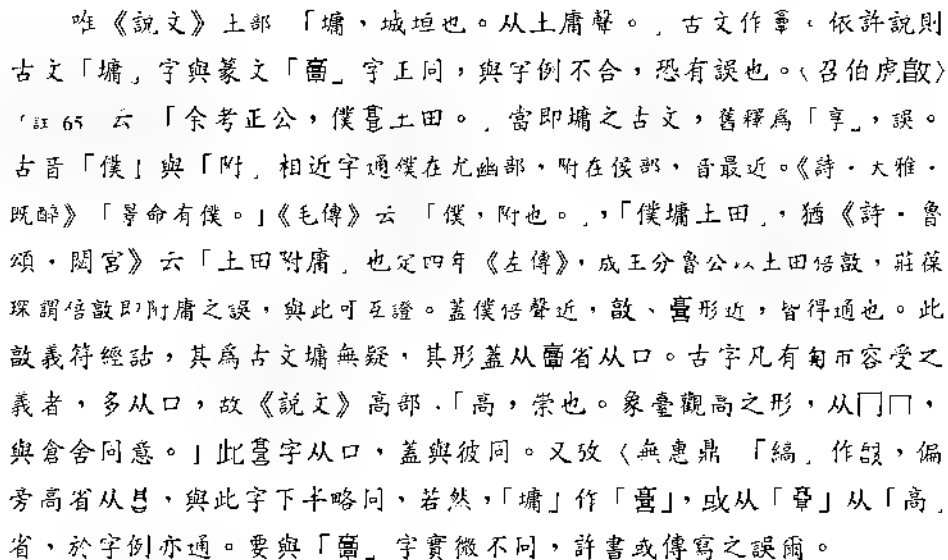 唯《說文》土部「墉，城垣也。从土庸聲。」古文作𩫖。依許說則
古文「墉」字與篆文「𩫏」字正同，與字例不合，恐有誤也。〈召伯虎敦〉
註65云「余考正公，僕𩫖土田。」當即墉之古文，舊釋爲「享」，誤。
古音「僕」與「附」相近字通僕在尤幽部，附在侯部，音最近。《詩．大雅．
既醉》「景命有僕。」《毛傳》云「僕，附也。」，「僕墉土田」，猶《詩．魯
頌．閟宮》云「土田附庸」也定四年《左傳》，成王分魯公以土田倍敦，莊葆
琛謂倍敦即附庸之誤，與此可互證。蓋僕倍聲近，敦、𩫖形近，皆得通也。此
敦義符經詁，其爲古文墉無疑，其形蓋从𩫏省从口。古字凡有匌帀容受之
義者，多从口，故《說文》高部．「高，崇也。象臺觀高之形，从冂口，
與倉舍同意。」此𩫖字从口，蓋與彼同。又攷〈無惠鼎「縞」作，偏
旁高省从，與此字下半略同，若然，「墉」作「𩫖」，或从「」从「高」
省，於字例亦通。要與「𩫏」字實微不同，許書或傳寫之誤爾。